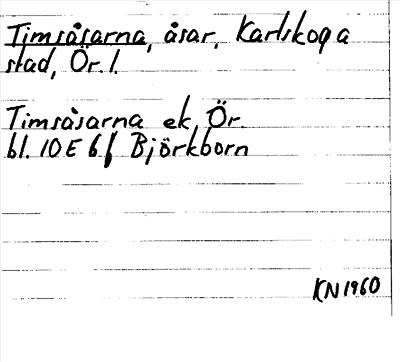 Timsåsarna, åsar, Karlskoga
stad, Ör. l.
Timsåsarna ek, Ör.
bl. 10E 6f Björkborn
KN 1960